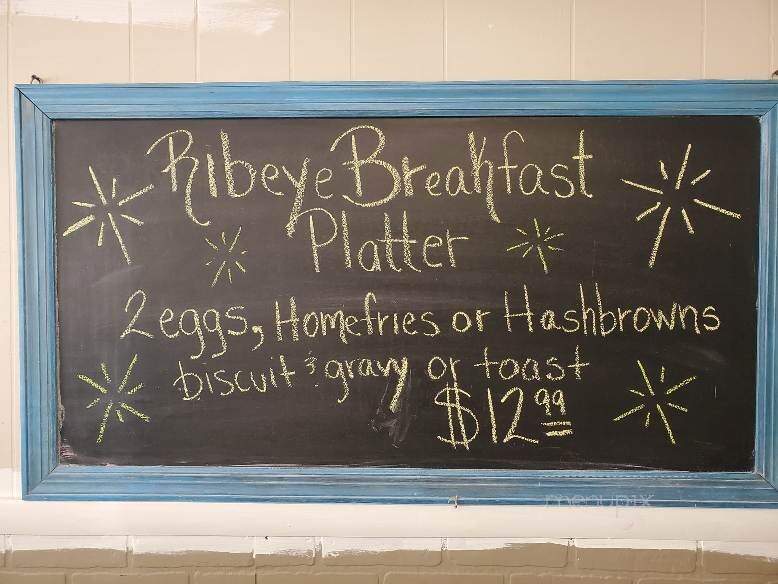 Ribeye Breakfast
Platter
2 eggs, Homefries or Hashbrowns
biscuit & gravy or toast
$12.99
menupix